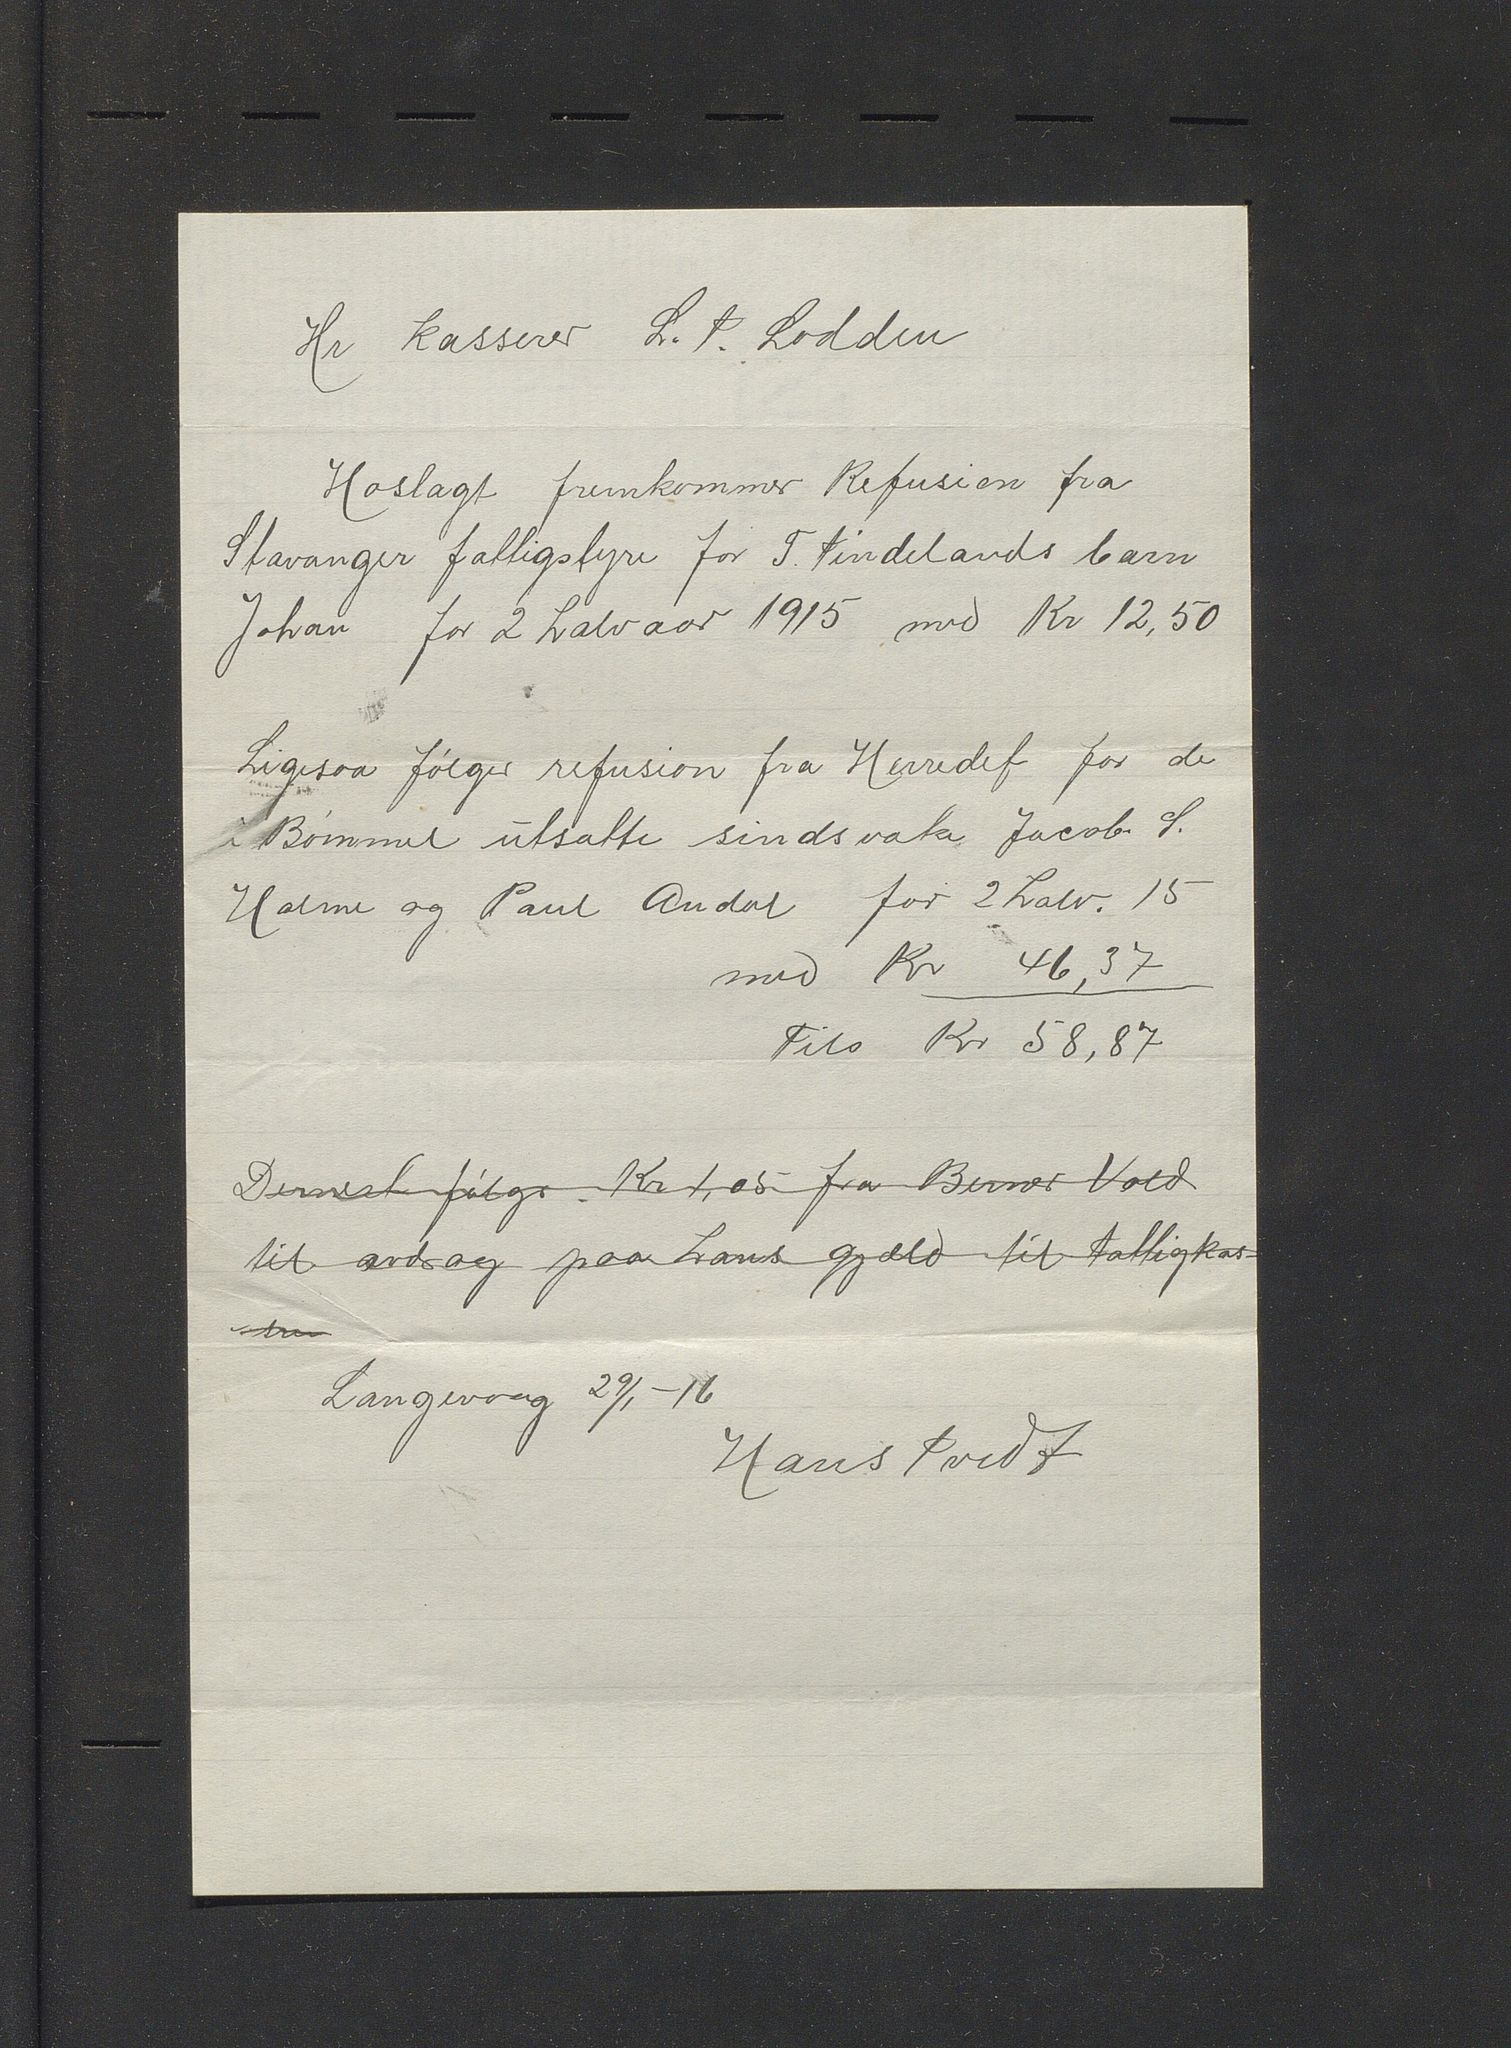 Hr kasserer L. T. Lodden
Hoslagt fremkommer Refusion fra
Stavanger fattigstyre for T. Tindelands barn
Johan for 2 halvaar 1915 med Kr 12,50
Ligesaa følger refusion fra Herredsk for de
i Bømmel utsatte sindsvake Jacob S.
Holme og Paul Andal for 2 halv. 15
med Kr 46,37
Tils Kr 58,87
Dernest følger Kr 1,05 fra Berner Vold
til avdrag paa hans gjæld til fattigkas-
sen
Langevaag 29/1-16
Hans Tvedt